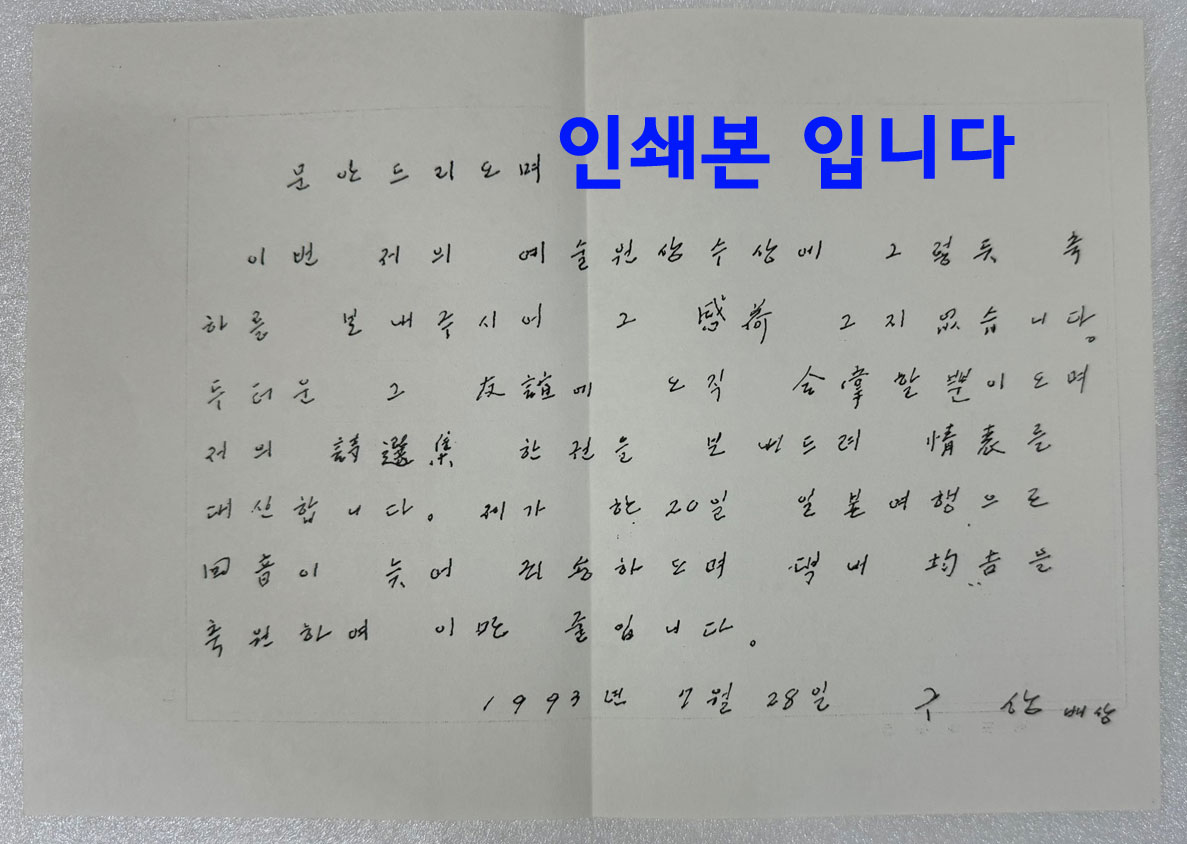 인쇄본 입니다
문안드리오며
이번 저의 예술원상수상에 그렇듯 축
하를 보내주시어 그 感荷 그지 없습니다.
두터운 그 友誼에 오직 合掌할뿐이오며
저의 詩選集 한권을 보내드려 情表를
대신합니다. 제가 한 20일 일본여행으로
回音이 늦어 죄송하오며 댁내 均吉을
축원하여 이만 줄입니다.
1993년 7월 28일 구 상 배상